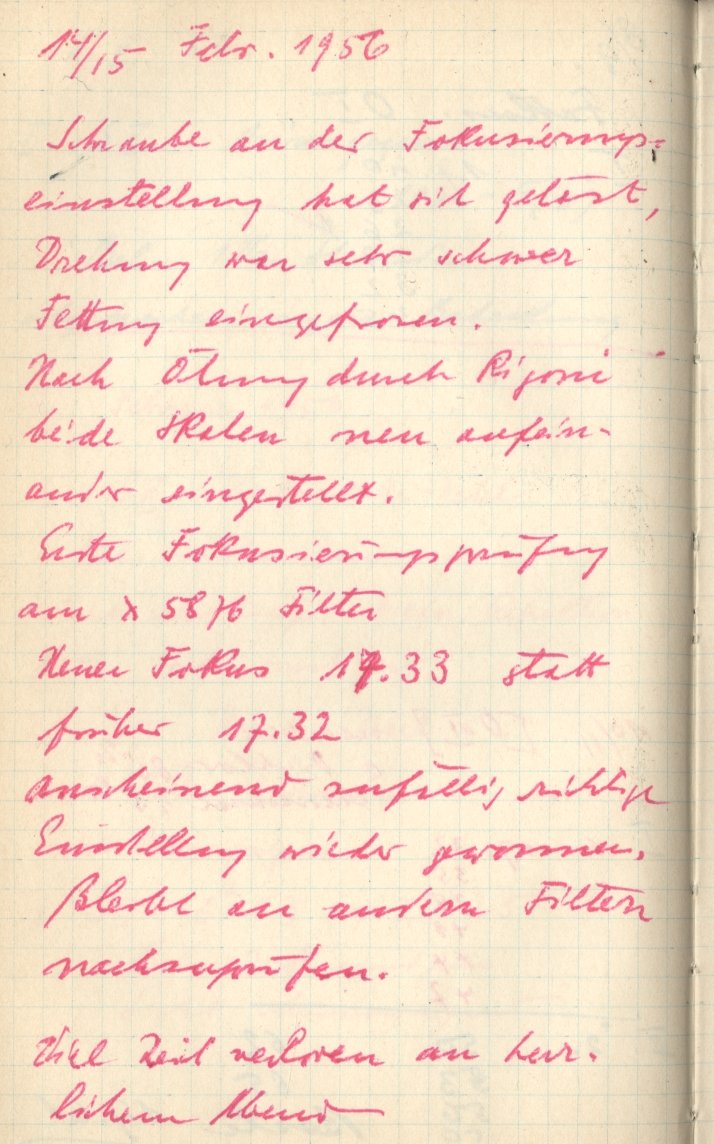 14/15 Febr. 1956
Schraube an der Fokusierungs-
einstellung hat sich gelöst,
Drehung war sehr schwer
Fettung eingefroren.
Nach Ölung durch Rigoni
beide Skalen neu aufein-
ander eingestellt.
Erste Fokusierungsprüfung
am λ 5876 Filter
Neuer Fokus 17.33 statt
früher 17.32
anscheinend zufällig richtige
Einstellung wieder gewonnen.
Bleibt an andern Filtern
nachzuprüfen.
Viel Zeit verloren an herr-
lichem Abend